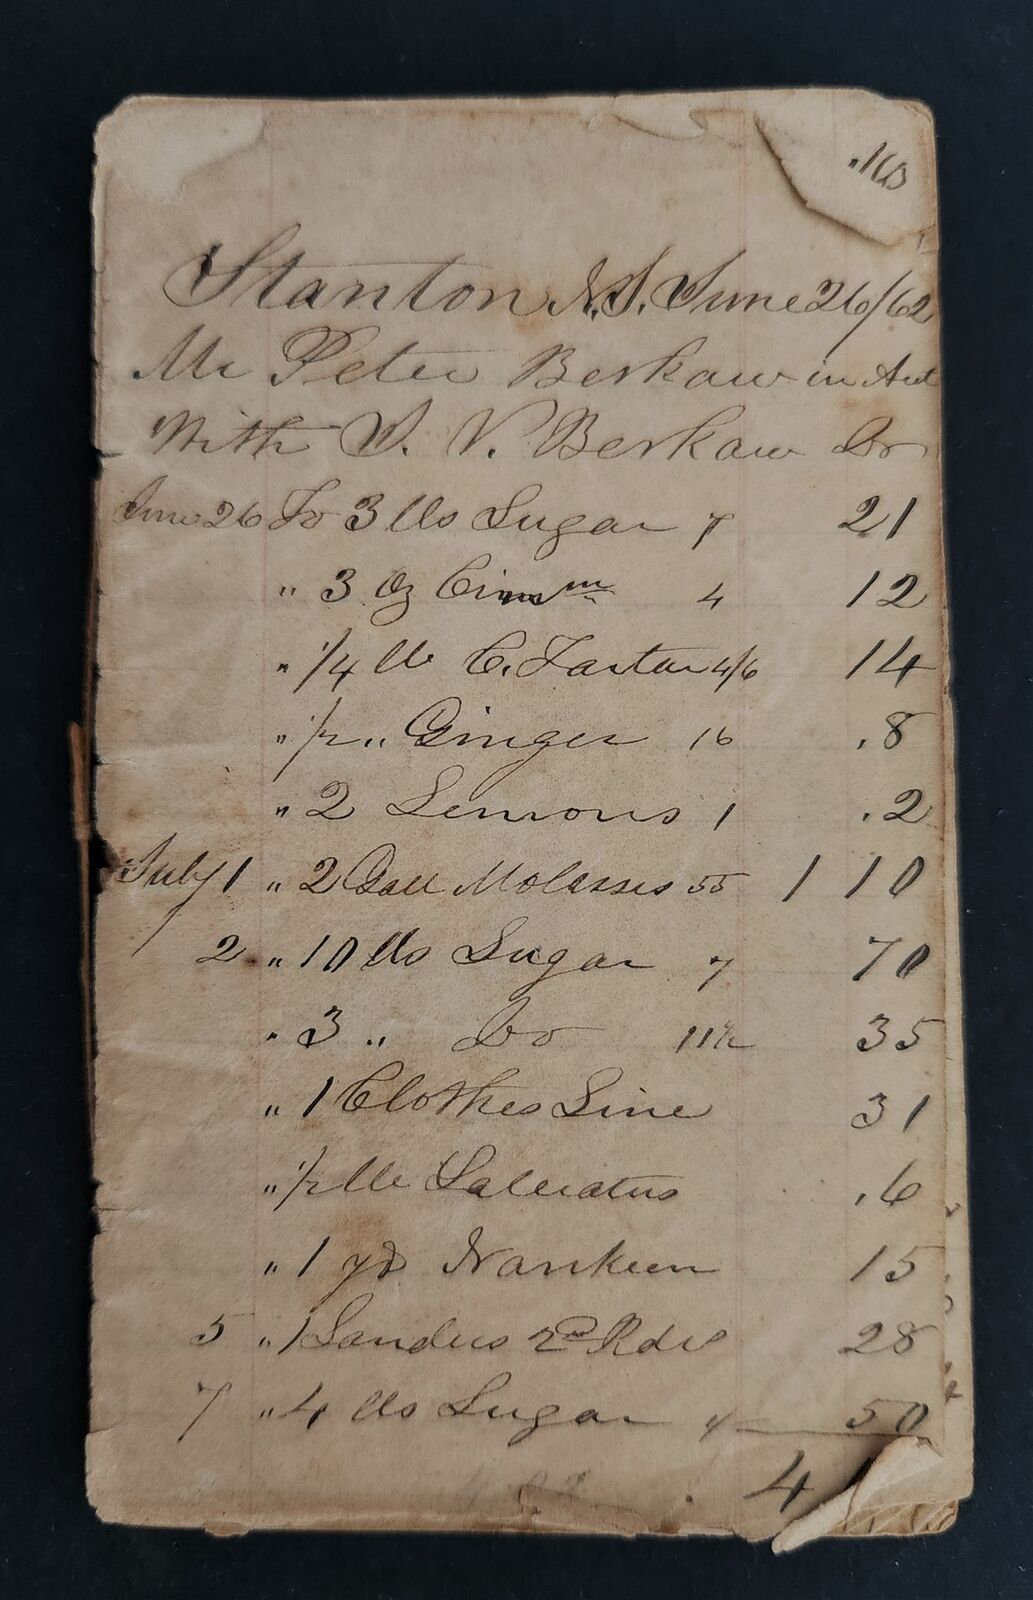 Stanton N.J. June 26/62
Mr Peter Berkaw in Act
With J. V. Berkaw Dr
June 26 To 3 lbs Sugar 7 21
" 3 Oz Cinnm 4 12
" 1/4 lb C. Tartar 4/6 14
" 1/2 " Ginger 16 .8
" 2 Lemons 1 .2
July 1 " 2 Gall Molasses 55 1 10
2 " 10 lbs Sugar 7 70
" 3 " Do 11 1/2 35
" 1 Clothes Line 31
" 1/2 lb Saleratus .6
" 1 yd Nankeen 15
5 " 1 Sanders 2nd Rdr 28
7 " 4 lbs Sugar 50
4